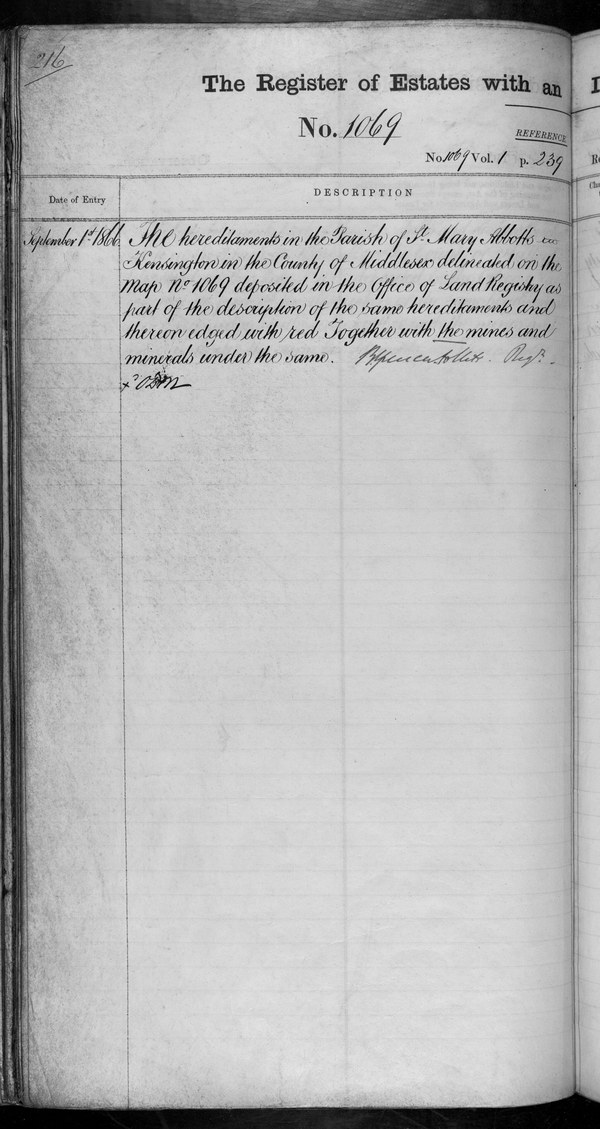 216
The Register of Estates with an
No. 1069
REFERENCE
No 1069 Vol. 1 p. 239
Date of Entry
DESCRIPTION
September 1st 1866
The hereditaments in the Parish of St. Mary Abbotts
Kensington in the County of Middlesex delineated on the
Map No 1069 deposited in the Office of Land Registry as
part of the description of the same hereditaments and
thereon edged with red Together with the mines and
minerals under the same. Regr.